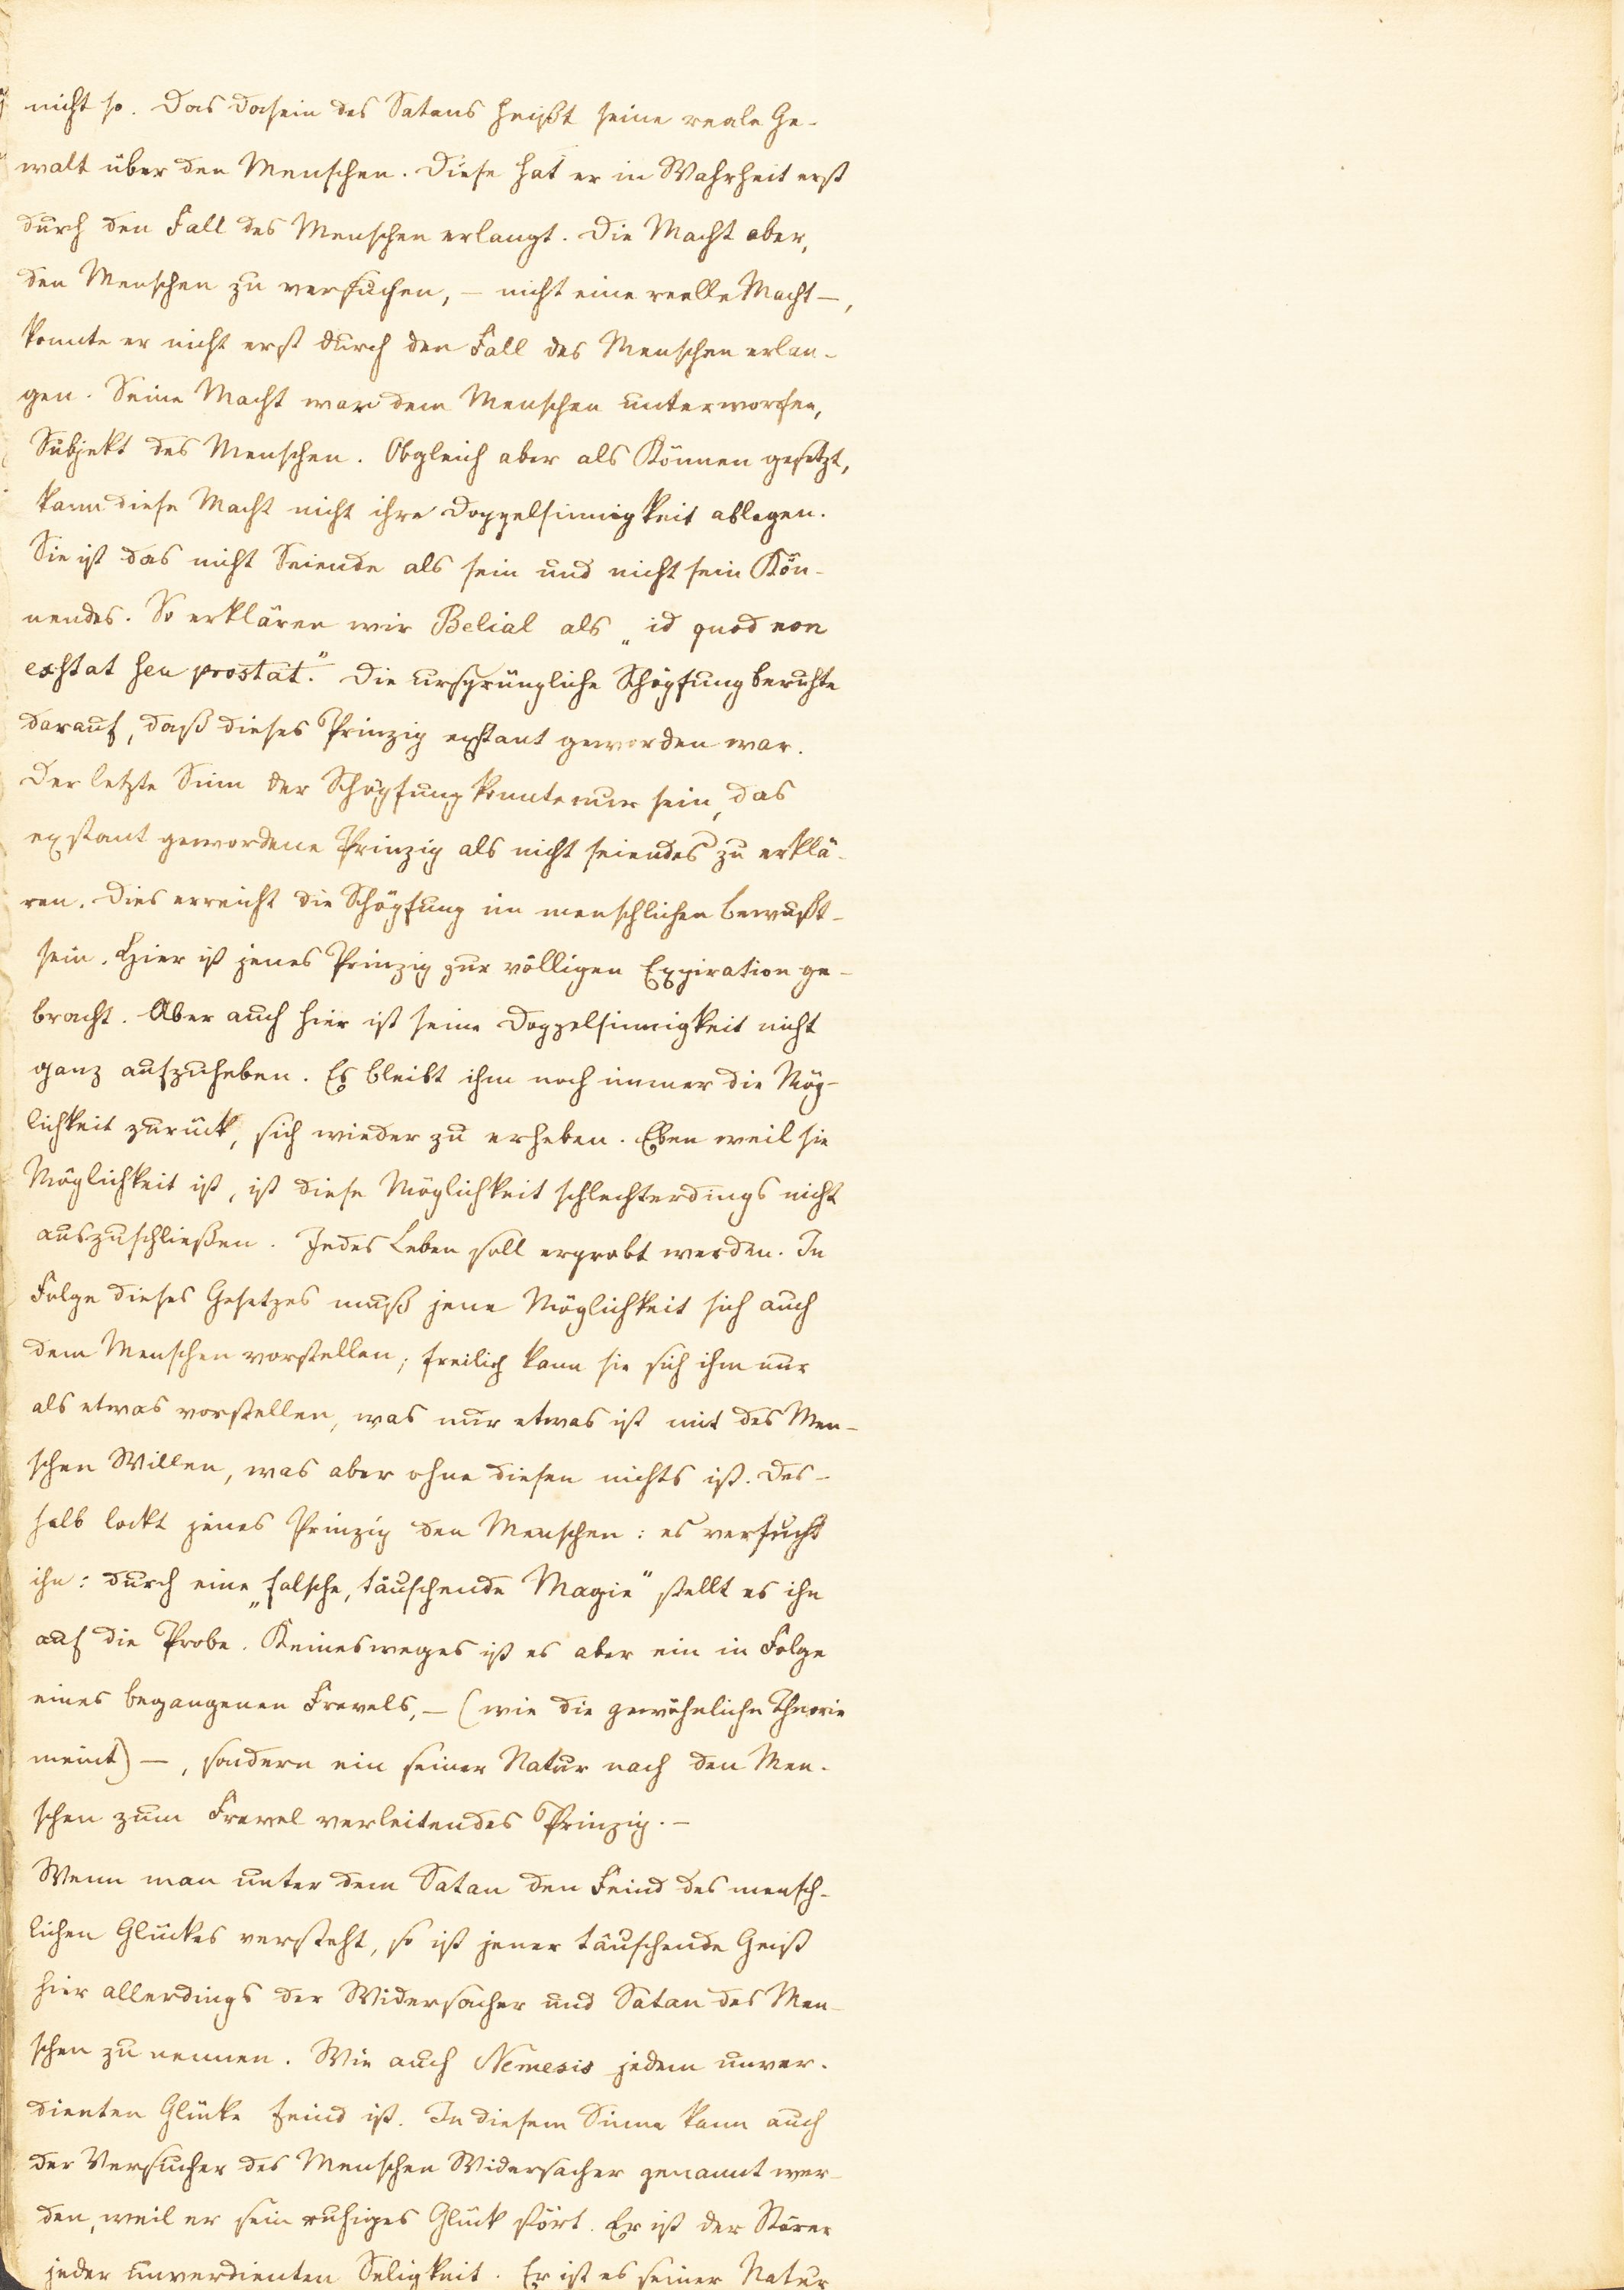 nicht so. Das Dasein des Satans heißt seine reale Ge-
walt über den Menschen. Diese hat er in Wahrheit erst
durch den Fall des Menschen erlangt. Die Macht aber,
den Menschen zu versuchen, – nicht eine reelle Macht –,
konnte er nicht erst durch den Fall des Menschen erlan-
gen. Seine Macht war dem Menschen unterworfen,
Subjekt des Menschen. Obgleich aber als Können gesetzt,
kann diese Macht nicht ihre Doppelsinnigkeit ablegen.
Sie ist das nicht Seiende als sein und nicht sein Kön-
nendes. So erklären wir Belial als „id quod non
exstat seu prostat." Die ursprüngliche Schöpfung beruhte
darauf, daß dieses Prinzip exstant geworden war.
Der letzte Sinn der Schöpfung konnte nur sein, das
exstant gewordene Prinzip als nicht seiendes zu erklä-
ren. Dies erreicht die Schöpfung im menschlichen Bewußt-
sein. Hier ist jenes Prinzip zur völligen Exspiration ge-
bracht. Aber auch hier ist seine Doppelsinnigkeit nicht
ganz aufzuheben. Es bleibt ihm noch immer die Mög-
lichkeit zurück, sich wieder zu erheben. Eben weil sie
Möglichkeit ist, ist diese Möglichkeit schlechterdings nicht
auszuschließen. Jedes Leben soll erprobt werden. In
Folge dieses Gesetzes muß jene Möglichkeit sich auch
dem Menschen vorstellen; freilich kann sie sich ihm nur
als etwas vorstellen, was nur etwas ist mit des Men-
schen Willen, was aber ohne diesen nichts ist. Des-
halb lockt jenes Prinzip den Menschen: es versucht
ihn: durch eine „falsche, täuschende Magie" stellt es ihn
auf die Probe. Keinesweges ist es aber ein in Folge
eines begangenen Frevels, – (wie die gewöhnliche Theorie
meint) –, sondern ein seiner Natur nach den Men-
schen zum Frevel verleitendes Prinzip. –
Wenn man unter dem Satan den Feind des mensch-
lichen Glückes versteht, so ist jener täuschende Geist
hier allerdings der Widersacher und Satan des Men-
schen zu nennen. Wie auch Nemesis jedem unver-
dienten Glücke feind ist. In diesem Sinne kann auch
der Versucher des Menschen Widersacher genannt wer-
den, weil er sein ruhiges Glück stört. Er ist der Störer
jeder unverdienten Seligkeit. Er ist es seiner Natur